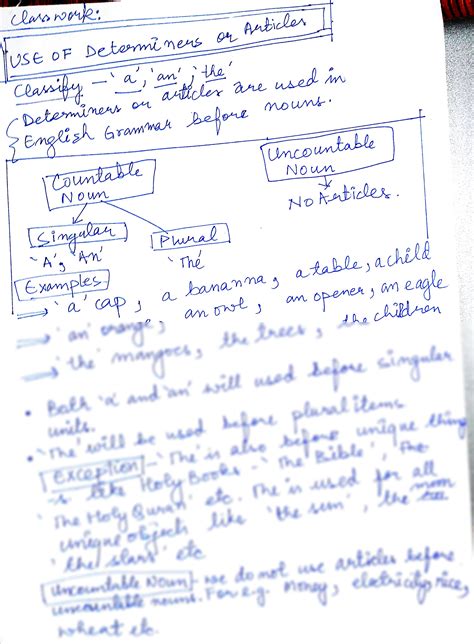 Classwork:
USE OF Determiners or Articles
Classify – 'a', 'an', 'the'
Determiners or articles are used in
English Grammar before nouns.
Countable Noun
Uncountable Noun
No Articles.
Singular
Plural
'A', 'An'
'The'
Examples
'a' cap, a bananna, a table, a child
'an' orange, an owl, an opener, an eagle
'the' mangoes, the trees, the children
• Both 'a' and 'an' will used before singular
units.
• 'The' will be used before plural items
Exception – 'The' is also before unique thing
s like Holy Books 'The Bible', The
'The Holy Quran' etc. The is used for all
unique objects like 'the sun', the moon
'the stars' etc
Uncountable Noun – we do not use articles before
uncountable nouns. For e.g. Money, electricity, rice,
wheat etc.